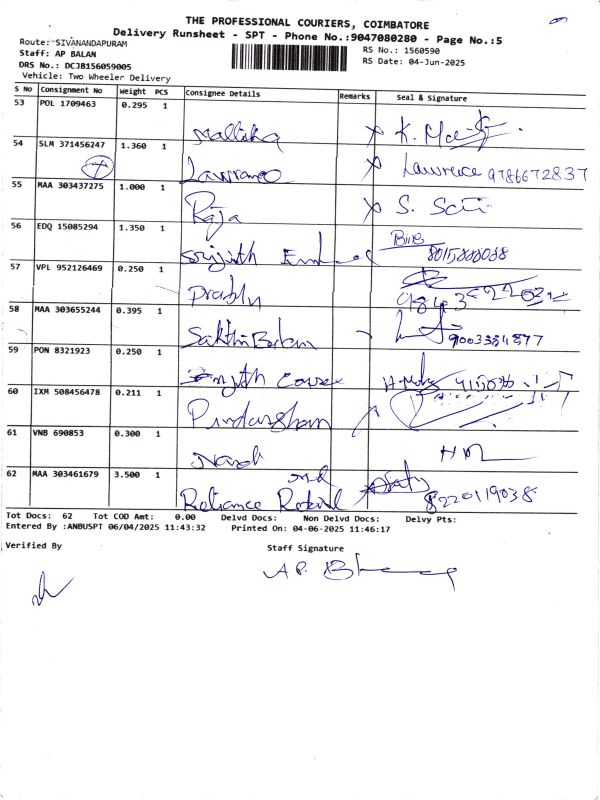 THE PROFESSIONAL COURIERS, COIMBATORE
Delivery Runsheet - SPT - Phone No.:9047080280 - Page No.:5
Route: SIVANANDAPURAM
RS No.: 1560590
Staff: AP BALAN
RS Date: 04-Jun-2025
DRS No.: DCJB156059005
Vehicle: Two Wheeler Delivery
S No Consignment No Weight PCS Consignee Details Remarks Seal & Signature
53 POL 1709463 0.295 1 Mallika K.
54 SLM 371456247 1.360 1 Lawrance Lawrence 9786672837
55 MAA 303437275 1.000 1 Raja S.
56 EDQ 15085294 1.350 1 Srijith
57 VPL 952126469 0.250 1 Prabhu
58 MAA 303655244 0.395 1 Sakthi Balan
59 PON 8321923 0.250 1
60 IXM 508456478 0.211 1
61 VNB 690853 0.300 1
62 MAA 303461679 3.500 1 Reliance Retail 8220119038
Tot Docs: 62 Tot COD Amt: 0.00 Delvd Docs: Non Delvd Docs: Delvy Pts:
Entered By :ANBUSPT 06/04/2025 11:43:32 Printed On: 04-06-2025 11:46:17
Verified By
Staff Signature